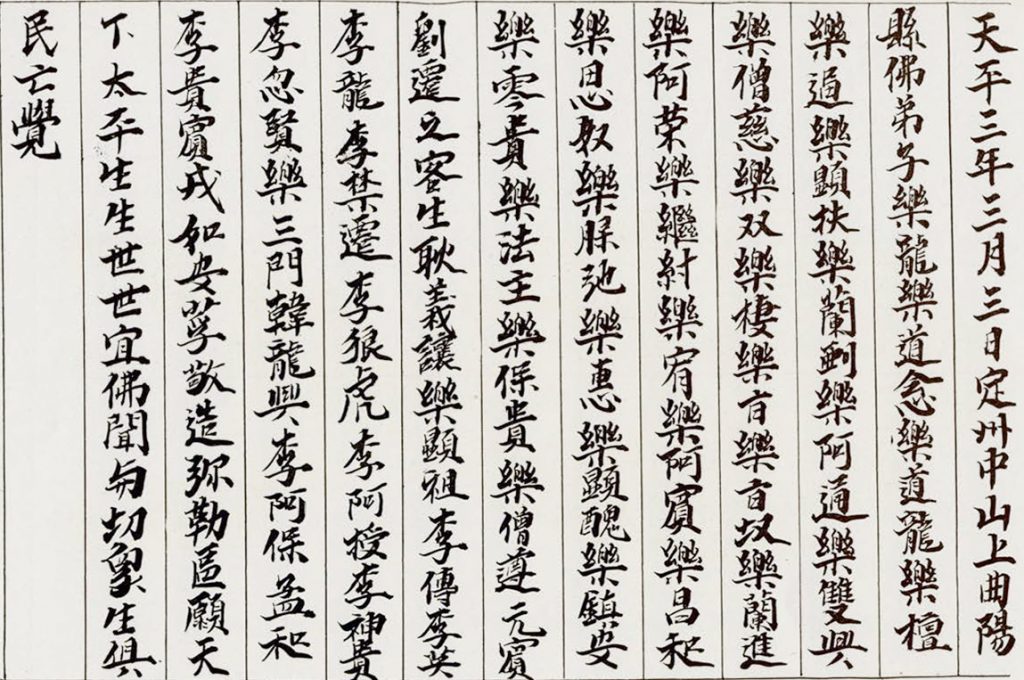 天平三年三月三日定州中山上曲陽
縣佛弟子樂龍樂道念樂道龍樂檀
樂逼樂顯扶樂蘭樂阿通樂雙興
樂僧慈樂双樂棲樂百樂百奴樂蘭進
樂阿荣樂繼紂樂宥樂阿賓樂昌和
樂思奴樂樂惠樂顯醜樂鎮安
樂零貴樂法主樂保貴樂僧遵元賓
劉遷之客生耿義讓樂顯祖李傳李英
李龍李槃遷李狠虎李阿授李神貴
李忽賢樂三門韓龍興李阿保孟和
李貴賓戎和安敬造弥勒區願天
下太平生生世世宜佛聞切象生俱
民亡覺